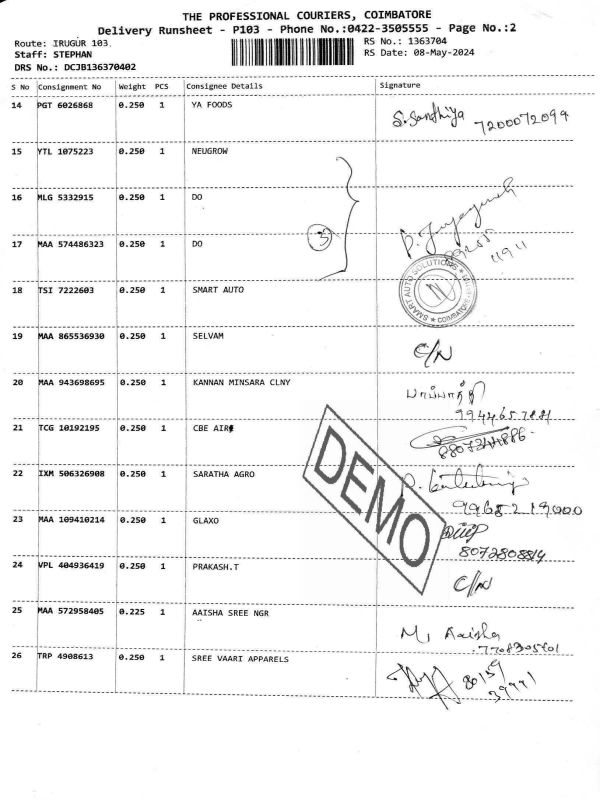 THE PROFESSIONAL COURIERS, COIMBATORE
Delivery Runsheet - P103 - Phone No.:0422-3505555 - Page No.:2
Route: IRUGUR 103. RS No.: 1363704
Staff: STEPHAN RS Date: 08-May-2024
DRS No.: DCJB136370402
S No Consignment No Weight PCS Consignee Details Signature
14 PGT 6026868 0.250 1 YA FOODS S. Sandhiya 7200072099
15 YTL 1075223 0.250 1 NEUGROW
16 MLG 5332915 0.250 1 DO
3
17 MAA 574486323 0.250 1 DO
11911
18 TSI 7222603 0.250 1 SMART AUTO SMART AUTO SOLUTIONS
19 MAA 865536930 0.250 1 SELVAM C/N
20 MAA 943698695 0.250 1 KANNAN MINSARA CLNY
21 TCG 10192195 0.250 1 CBE AIR
22 IXM 506326908 0.250 1 SARATHA AGRO
23 MAA 109410214 0.250 1 GLAXO
8072808814
24 VPL 404936419 0.250 1 PRAKASH.T C/N
25 MAA 572958405 0.225 1 AAISHA SREE NGR M. Aaisha
26 TRP 4908613 0.250 1 SREE VAARI APPARELS 80159
39991
DEMO